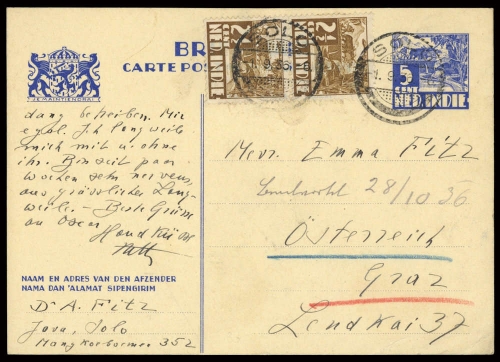 BR
CARTE POS
JE MAINTIENDRAI
NED. INDIE
2½
NED. INDIE
2½
SOLO
5
CENT
NED. INDIE
dang betreiben. Mir
egal. Ich langweile
mich mit u. ohne
ihr. Bin seit paar
Wochen sehr nervös,
aus grässlicher Lang-
weile. – Beste Grüsse
an Oser.
Handküsse
NAAM EN ADRES VAN DEN AFZENDER
NAMA DAN 'ALAMAT SIPENGIRIM
Dr A. Fitz
Java, Solo
Mangkoeboemen 352
Mevr. Emma Fitz
28/10 36
Österreich
Graz
Lendkai 37